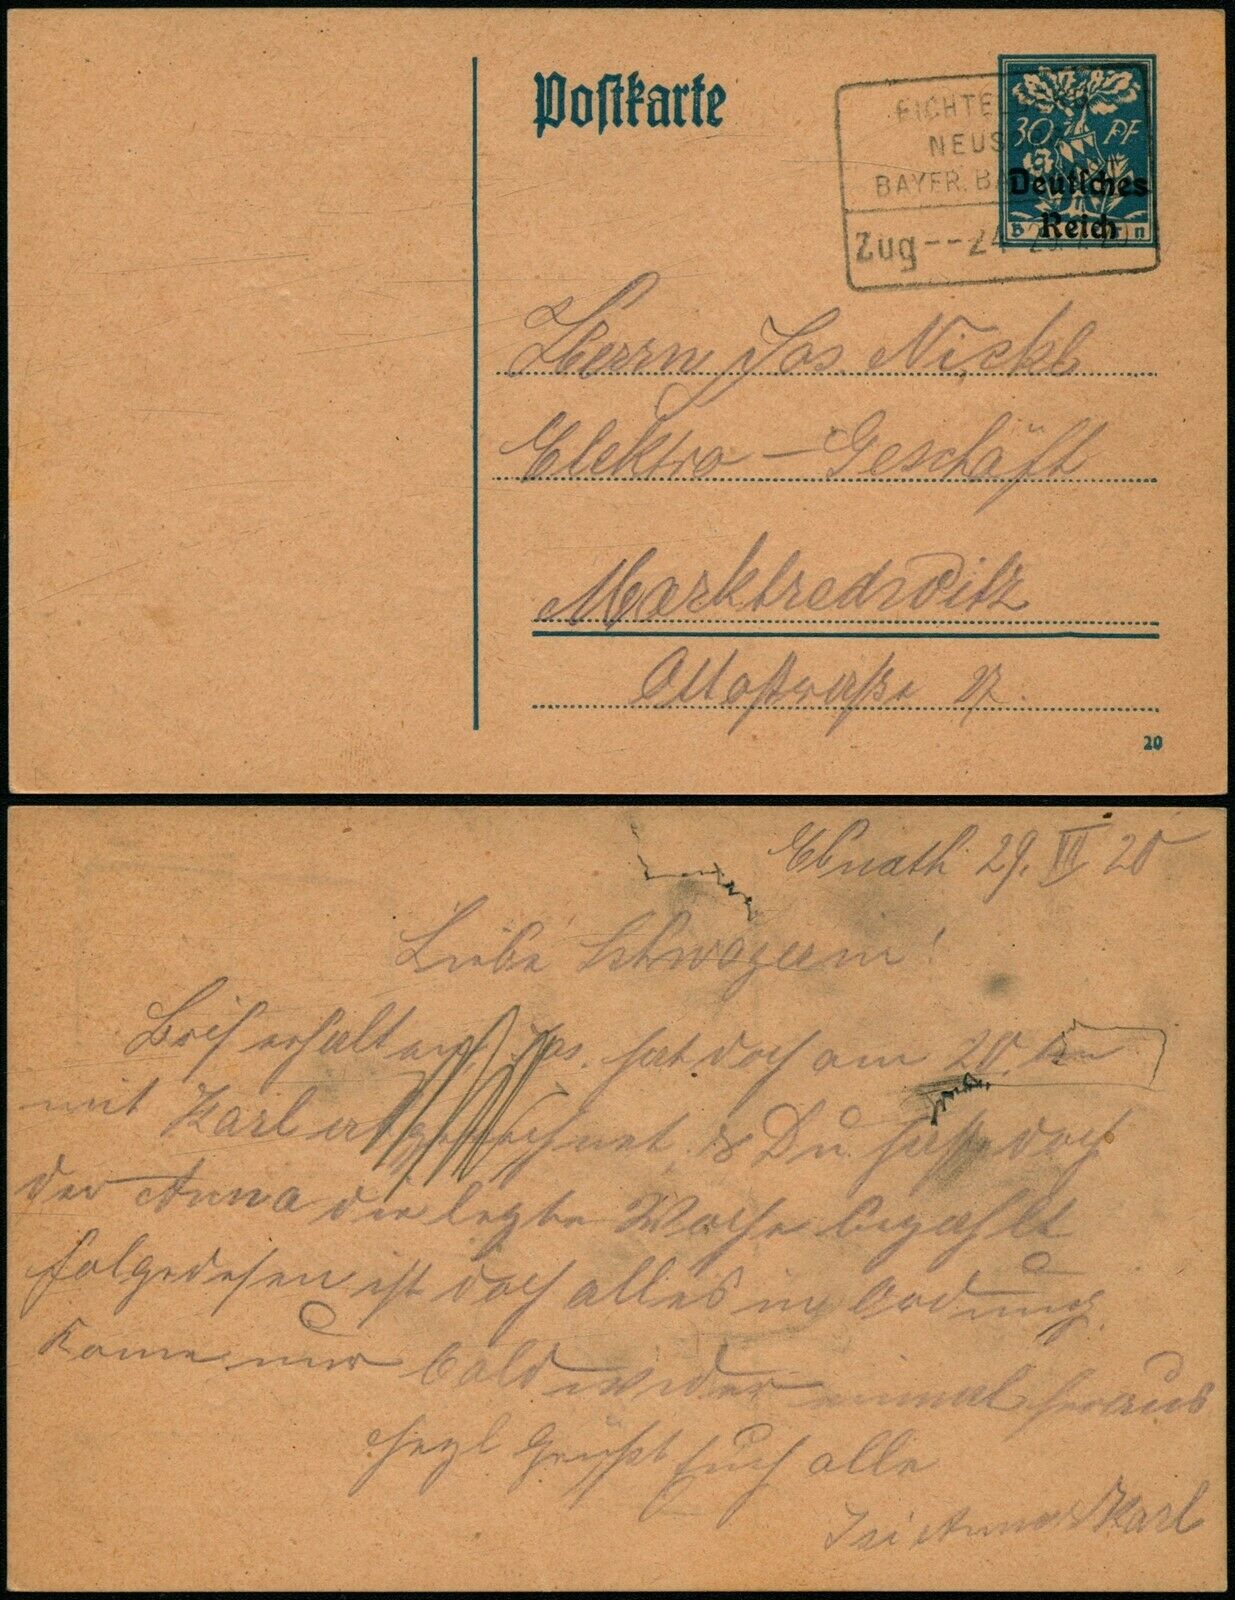 Postkarte
FICHTE
NEUS
BAYER. BA
Zug -- 24
30 PF
Deutsches
Reich
B n
Herrn Jos. Nickl
Elektro - Geschäft
Marktredwitz
Ottostraße 17.
20
Ebnath 29. VII 20
Liebe Schwägerin!
Brief erhalten, Jos. hat doch am 20.
mit Karl abgerechnet, & Du hast doch
der Anna die letzte Woche bezahlt
folgedesen ist doch alles in Ordnung.
Kome nur bald wider einmal heraus
herzl Grüßt Euch alle
Anna & Karl